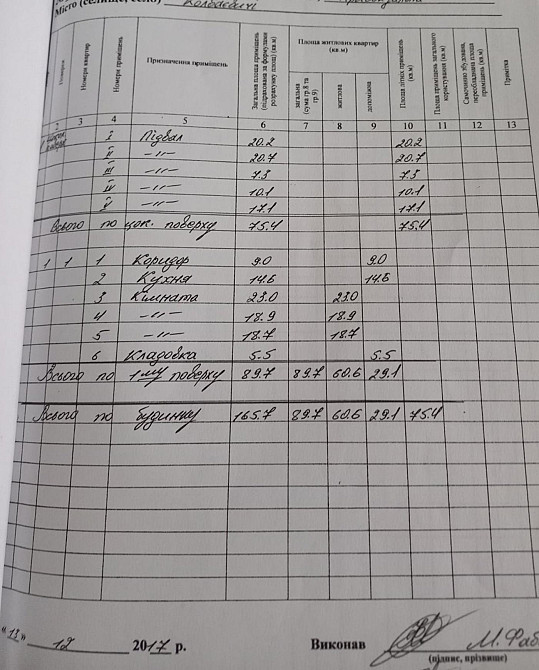 Місто (селище, село) Колодєвичі
Поверх
Номери квартир
Номери приміщень
Призначення приміщень
Загальна площа приміщень (підрахована за формулами розрахунку площ) (кв.м)
Площа житлових квартир (кв.м)
загальна (сума гр.8 та гр.9)
житлова
допоміжна
Площа літніх приміщень (кв.м)
Площа приміщень загального користування (кв.м)
Самочинно збудована, переобладнана площа приміщень (кв.м)
Примітка
2 3 4 5 6 7 8 9 10 11 12 13
I Підвал 20.2 20.2
II -"- 20.7 20.7
III -"- 7.3 7.3
IV -"- 10.1 10.1
V -"- 17.1 17.1
Всього по цок. поверху 75.4 75.4
1 1 1 Коридор 9.0 9.0
2 Кухня 14.6 14.6
3 Кімната 23.0 23.0
4 -"- 18.9 18.9
5 -"- 18.7 18.7
6 Кладовка 5.5 5.5
Всього по 1му поверху 89.7 89.7 60.6 29.1
Всього по будинку 165.7 89.7 60.6 29.1 75.4
"13" 12 2017 р. Виконав М. Фаб
(підпис, прізвище)